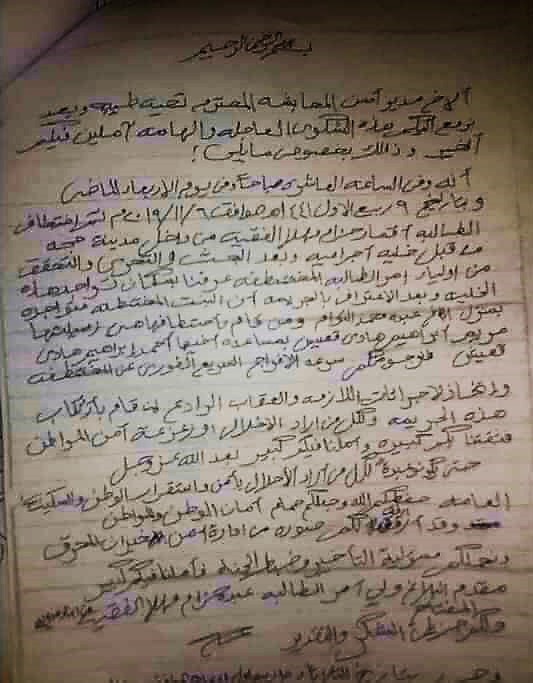 بسم الله الرحمن الرحيم
الاخ مدير أمن المحافظة المحترم تحية طيبة وبعد
نرفع اليكم بهذه الشكوى العاجلة والهامة آملين فيكم
الخير وذلك بخصوص مايلي :
أنه وفي الساعة العاشرة صباحاً وفي يوم الاربعاء الماضي
وبتاريخ ٩ ربيع الاول ١٤٤١هـ الموافق ٢٠١٩/١١/٦م تم اختطاف
الطالبة حزام الفقيه من داخل مدينة حجه
من قبل خلية اجرامية وبعد البحث والتحري والتحقق
من اولياء امر الطالبة المختطفة عرفنا بمكان تواجد هذه
الخلية وبعد الاعتراف بالجريمة أن البنت المختطفة متواجدة
بمنزل عبده محمد ومن قام باختطافها هي زميلتها
مريم ابراهيم هادي بمساعدة أخيها أحمد ابراهيم هادي
فنرجو منكم سرعة الافراج السريع الفوري عن المختطفة
واتخاذ الاجراءات اللازمة والعقاب الرادع لمن قام بارتكاب
هذه الجريمة ولكل من أراد الاخلال او زعزعة أمن المواطن
فثقتنا بكم كبيرة وأملنا فيكم كبير بعد الله عز وجل
حتى يكون عبرة لكل من أراد الاخلال بأمن واستقرار الوطن والسكينة
العامة حفظكم الله وجعلكم صمام أمان الوطن والمواطن
وقد أرفقنا لكم صورة من ادارة أمن
ونحملكم مسؤلية التأخير وضبط الجناة وأملنا فيكم كبير
مقدم البلاغ ولي أمر الطالبة عبده حزام الفقيه
ولكم جزيل الشكر والتقدير